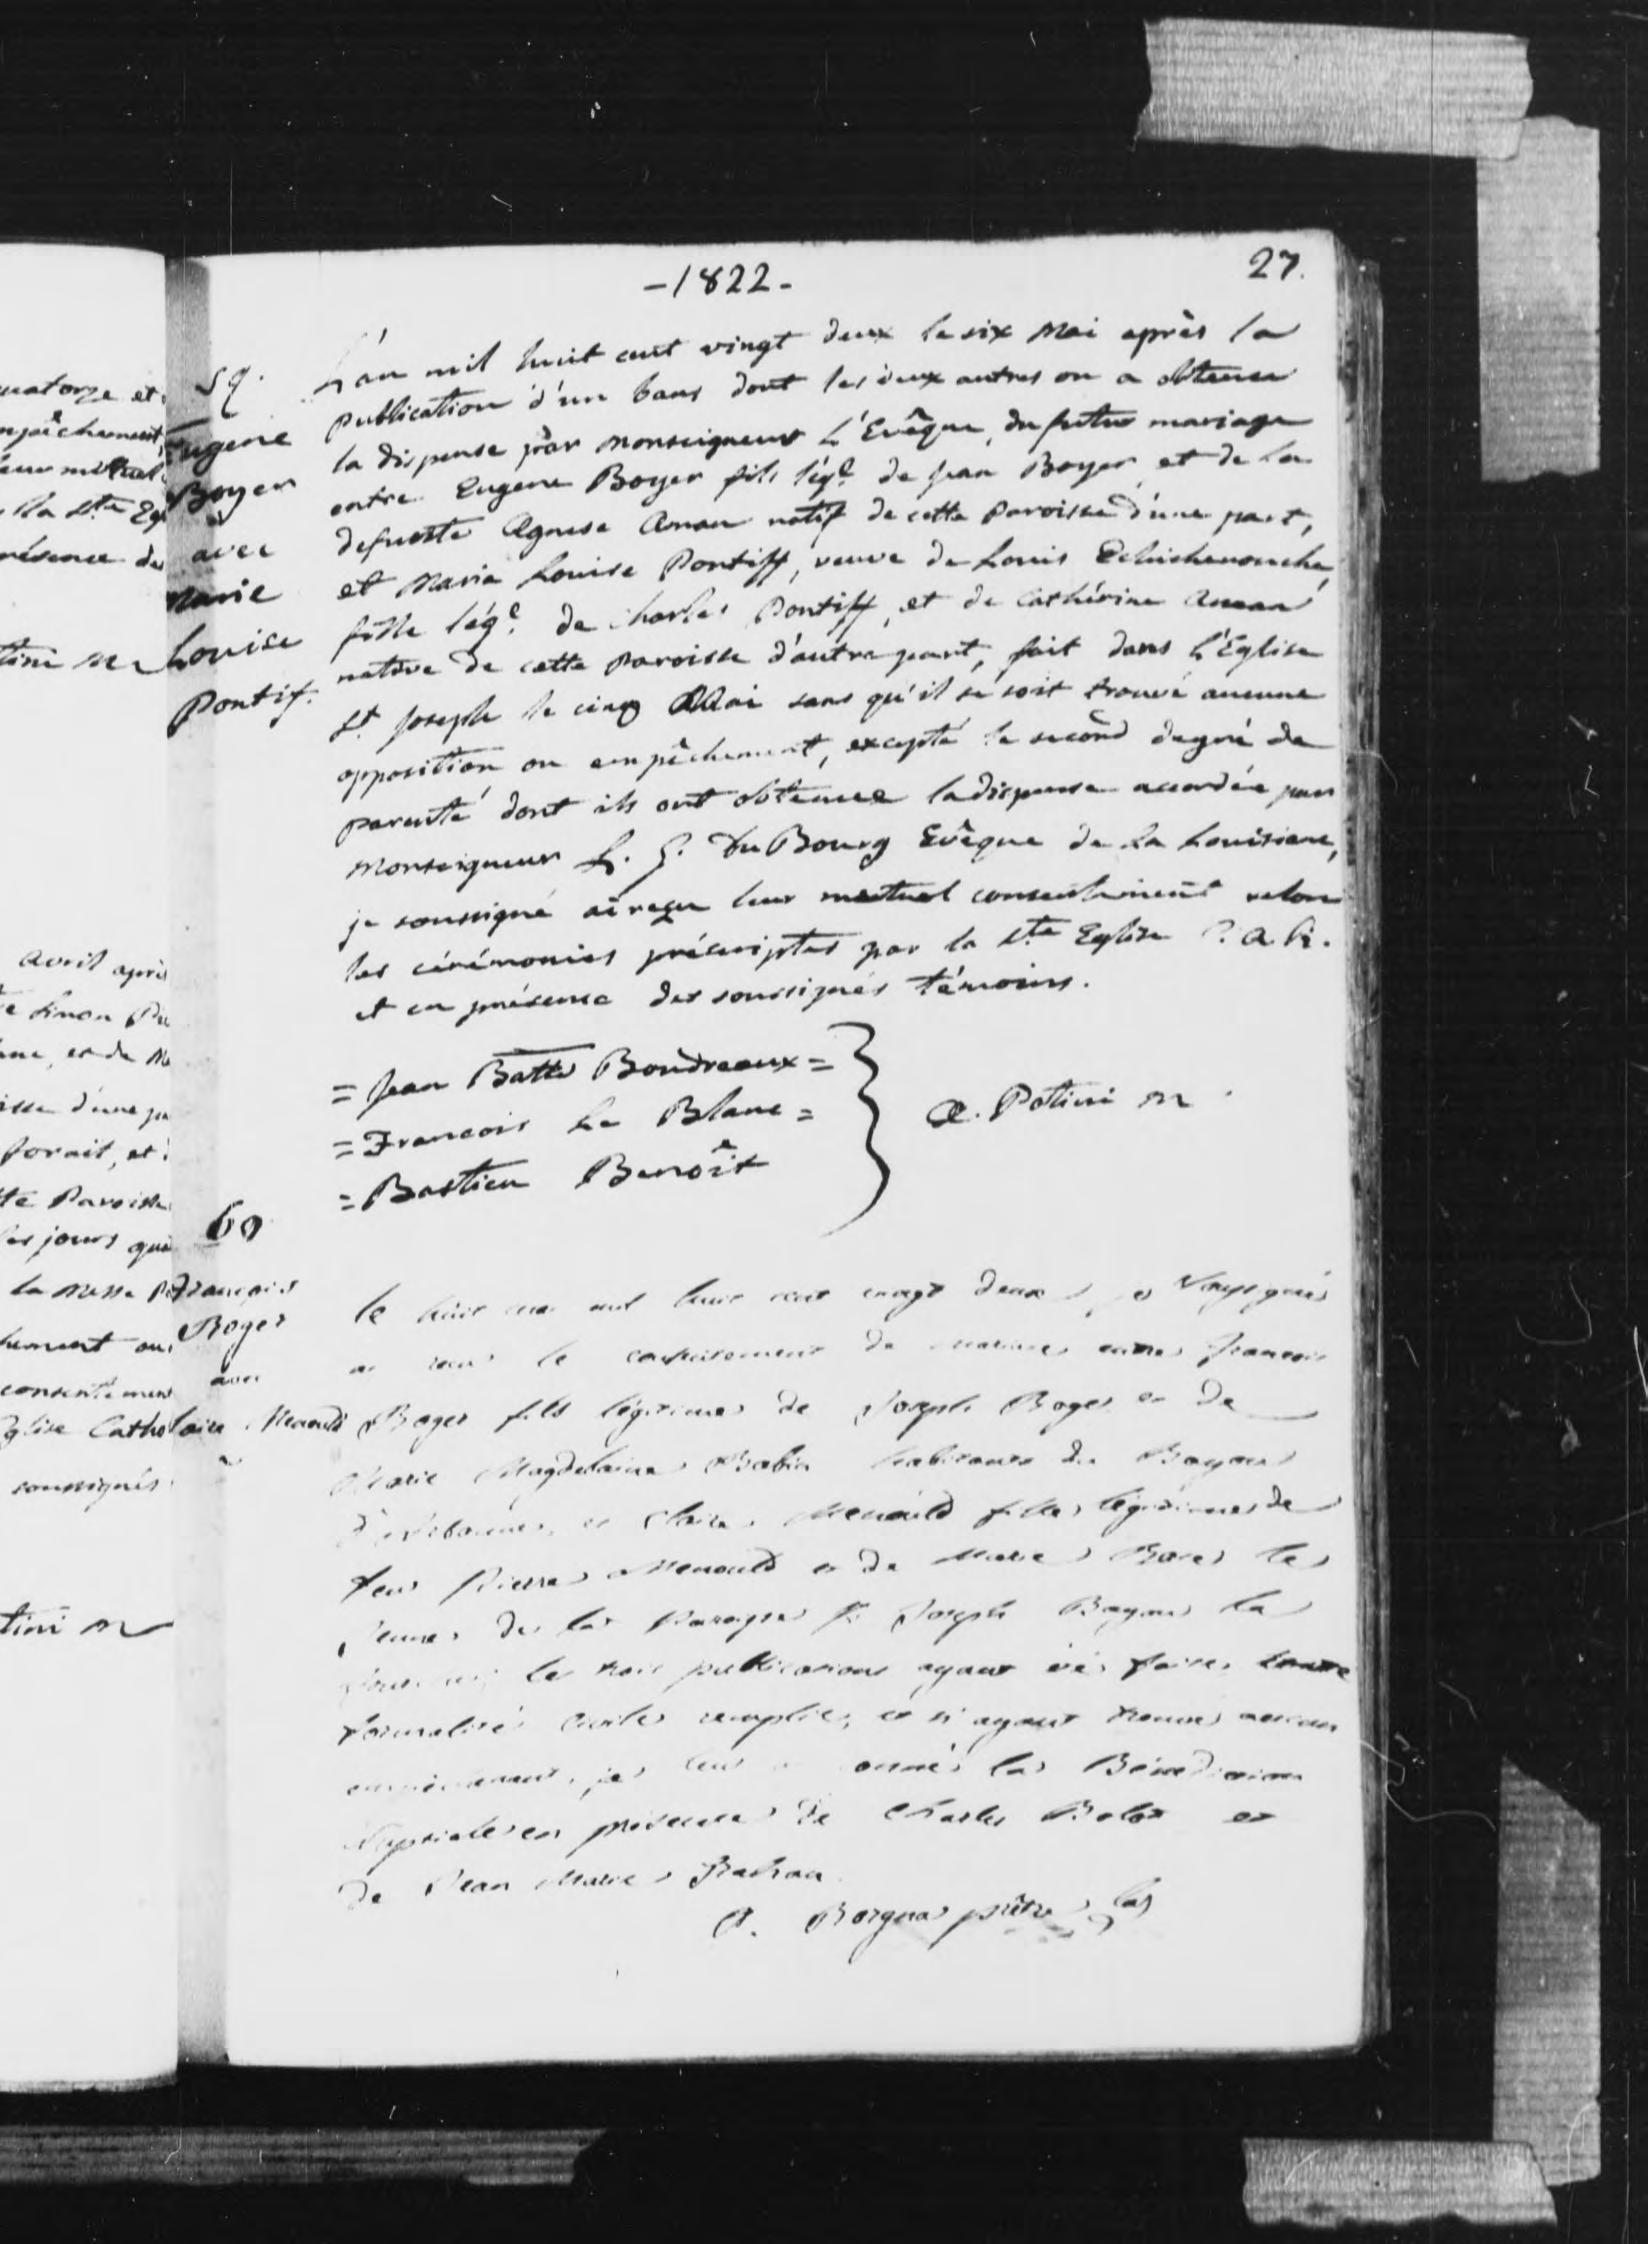 -1822-
27.
59.
Eugene
Boyer
avec
Marie
Louise
Pontif.
L'an mil huit cent vingt deux le six Mai après la
publication d'un bans dont les deux autres on a obtenue
la dispense par Monseigneur L'Evêque, du futur mariage
entre Eugene Boyer fils lég.e de Jean Boyer et de la
defunte Agnese Aman natif de cette Paroisse d'une part,
et Maria Louise Pontiff, veuve de Louis
fille lég.e de Charles Pontiff, et de Cathérine Aman
native de cette paroisse d'autre part, fait dans L'Eglise
St. Joseph le cinq Mai sans qu'il se soit trouvé aucune
opposition ou empêchement, excepté le second degré de
parenté dont ils ont obtenue la dispense accordée par
Monseigneur L. G. DuBourg Evêque de la Louisiane,
je soussigné ai reçu leur mutuel consentement selon
les cérémonies préscriptes par la Ste Eglise C. a. R.
et en présence des soussignés témoins.
= Jean Batte Boudreaux =
= Francois Le Blanc =
= Bastien Benoît
A. Potini m
60
François
Roger
avec
Claire Menould
le huit mai mil huit cent vingt deux je soussigné
ai reçu le consentement de mariage entre françois
Roger fils légitime de Joseph Roger et de
Marie Magdelaine Babin habitants du Bayou
et Claire Menould fille légitime de
feu Pierre Menould et de Marie
de la Paroisse St Joseph Bayou la
les trois publications ayant été faites toute
formalité civile remplie, et n'ayant trouvé aucun
empêchement, je leur ai donné la Bénédiction
Nuptiale en présence de Charles et
de Jean Marie
P. Borgna prêtre
uatorze et
mpêchement,
leur mutuel
la Ste Eg
présence de
tini m
avril après
d'une pa
te Paroisse
les jours que
la Messe
consentement
Eglise Catho
soussignés
tini m